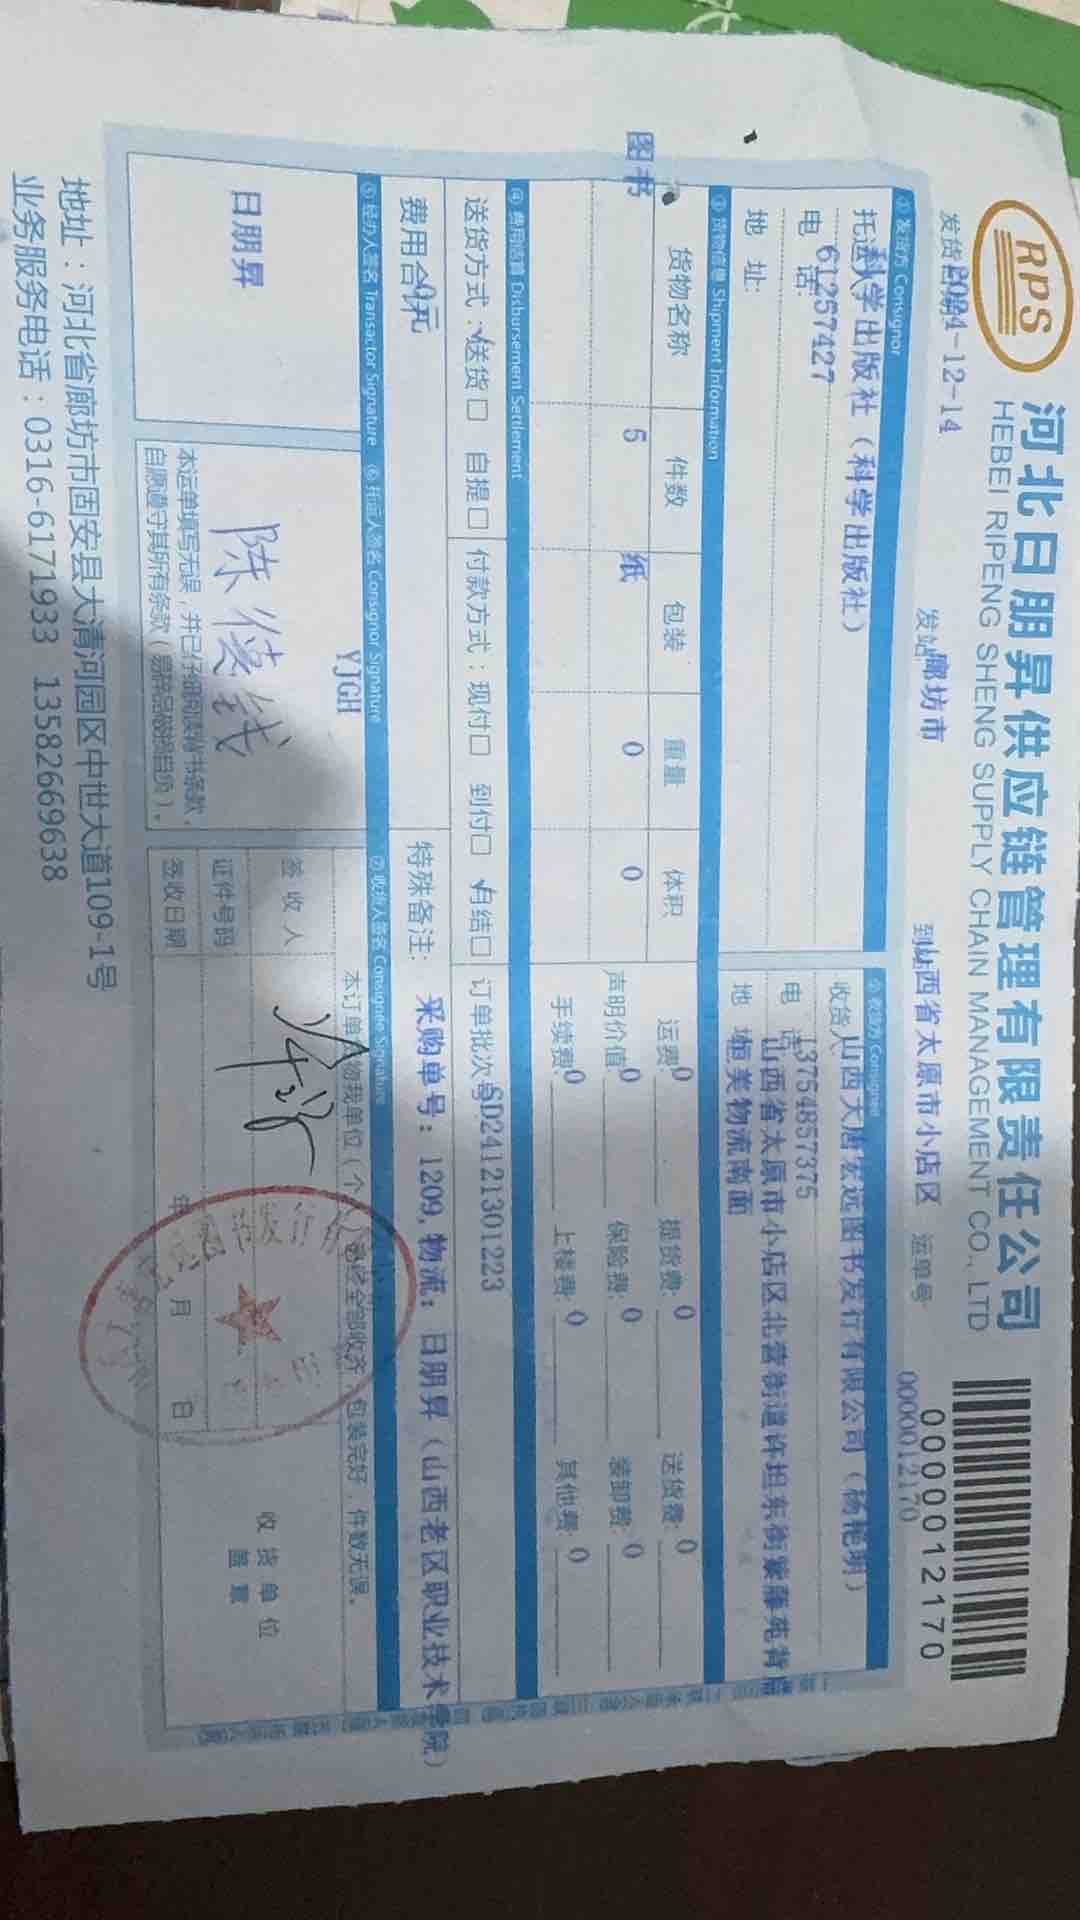 RPS
河北日朋昇供应链管理有限责任公司
HEBEI RIPENG SHENG SUPPLY CHAIN MANAGEMENT CO., LTD
0000012170
发货日期 2024-12-14 发站 廊坊市 到站 山西省太原市小店区 运单号 0000012170
①发货方 Consignor
托运人 科学出版社（科学出版社）
电话: 61257427
地址:
②收货方 Consignee
收货人 山西大唐宏远图书发行有限公司（杨艳明）
电话 13754857375
地址 山西省太原市小店区北营街道许坦东街紫藤苑背面
恒美物流南面
③货物信息 Shipment Information
货物名称 件数 包装 重量 体积
图书 5 纸 0 0
运费: 0 提货费: 0 送货费: 0
声明价值: 0 保险费: 0 装卸费: 0
手续费: 0 上楼费: 0 其他费: 0
④费用结算 Disbursement Settlement
送货方式: √送货□ 自提□ 付款方式: 现付□ 到付□ √月结□ 订单批次号 SD24121301223
费用合计 0元
特殊备注: 采购单号: 1209,物流: 日朋昇（山西老区职业技术学院）
⑤经办人签名 Transactor Signature ⑥托运人签名 Consignor Signature ⑦收货人签名 Consignee Signature
日朋昇
YJGH
本运单填写无误，并已仔细阅读背书条款，
自愿遵守其所有条款（易碎品破损自负）。
本订单货物我单位（个人）已经全部收齐，包装完好，件数无误。
签收人
证件号码
签收日期 年 月 日
收货单位
盖章
地址：河北省廊坊市固安县大清河园区中世大道109-1号
业务服务电话：0316-6171933 13582669638